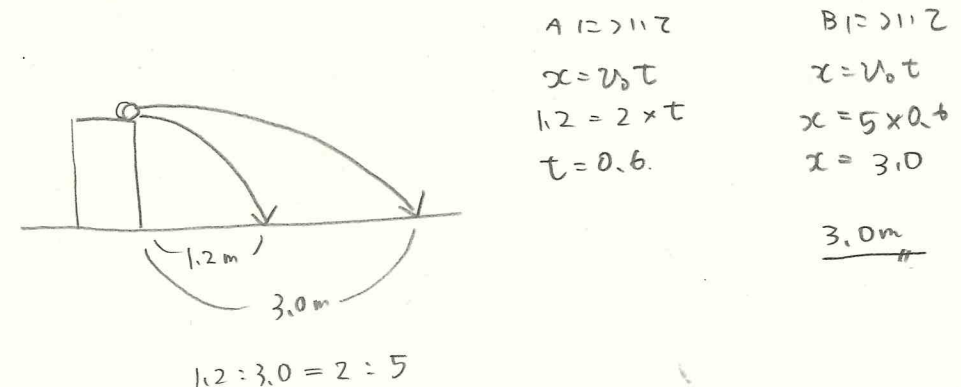 1.2m
3.0m
1.2 : 3.0 = 2 : 5
Aについて
x = v₀t
1.2 = 2 × t
t = 0.6.
Bについて
x = v₀t
x = 5 × 0.6
x = 3.0
3.0m